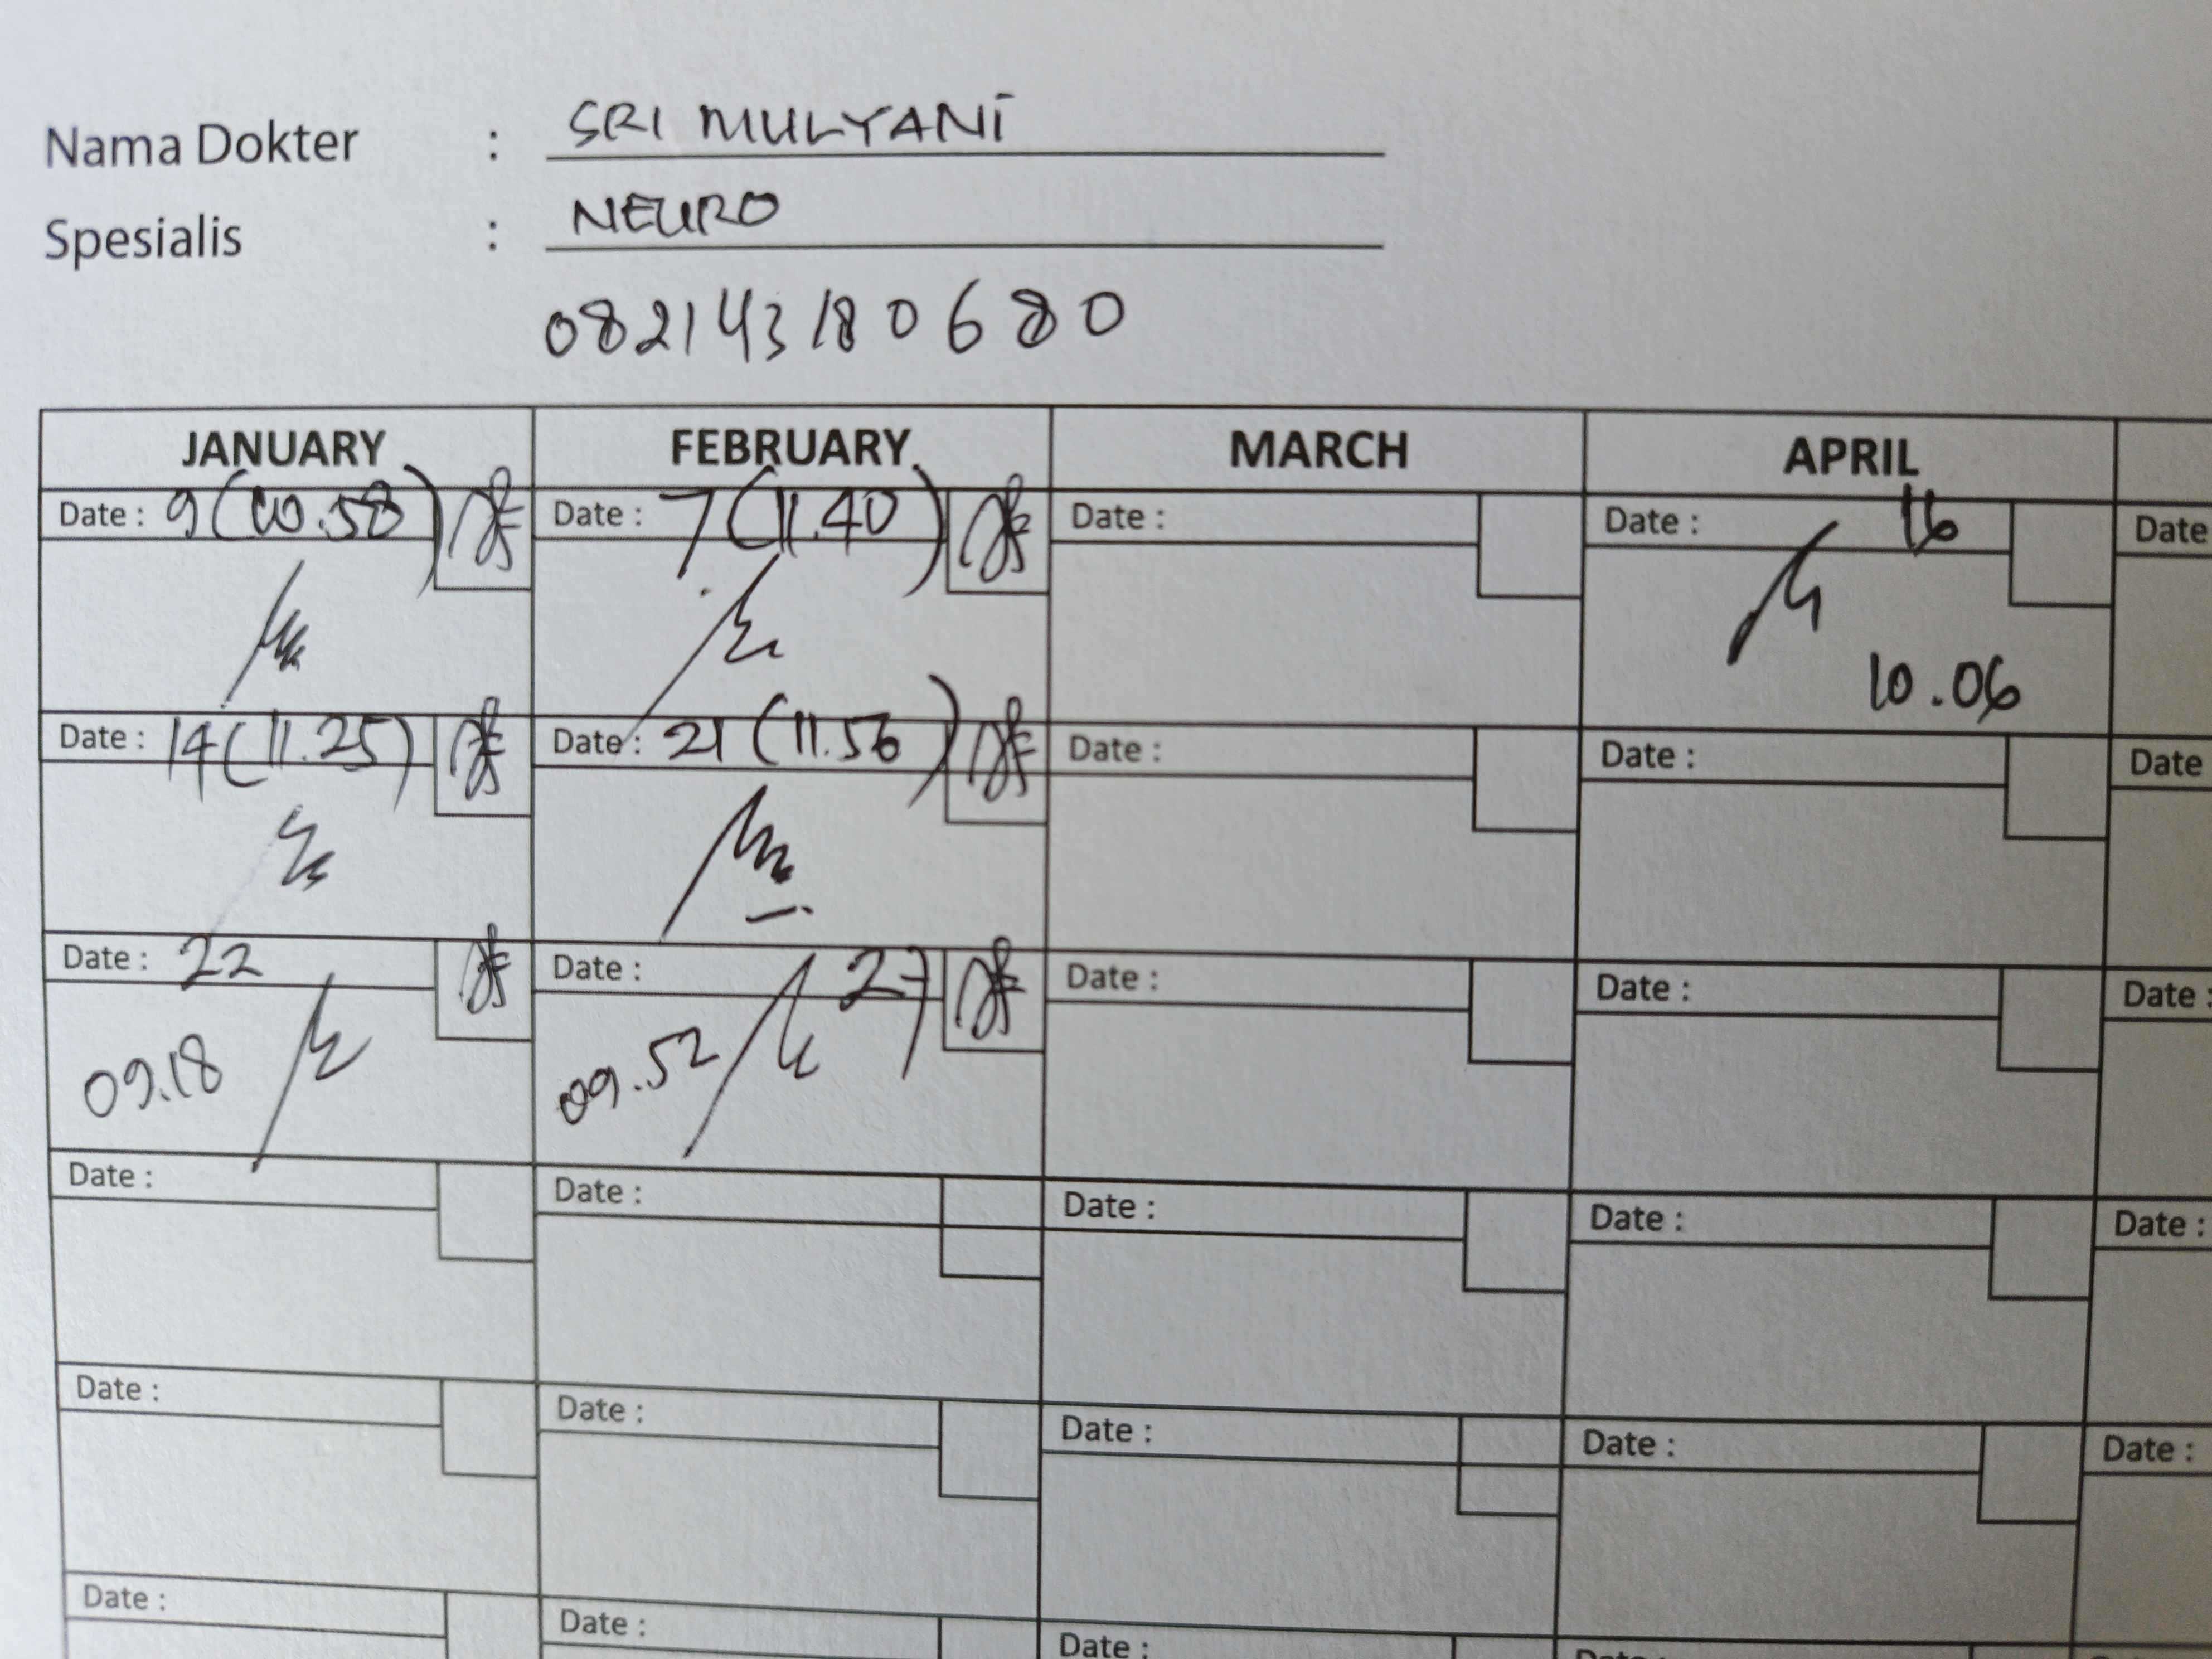 Nama Dokter : SRI MULYANI
Spesialis : NEURO
082143180680
JANUARY FEBRUARY MARCH APRIL
Date : 9 (10.58) Date : 7 (11.40) Date : Date : 16 Date
10.06
Date : 14 (11.25) Date : 21 (11.56) Date : Date : Date
Date : 22 Date : 27 Date : Date : Date :
09.18 09.52
Date : Date : Date : Date : Date :
Date : Date : Date : Date : Date :
Date : Date : Date :